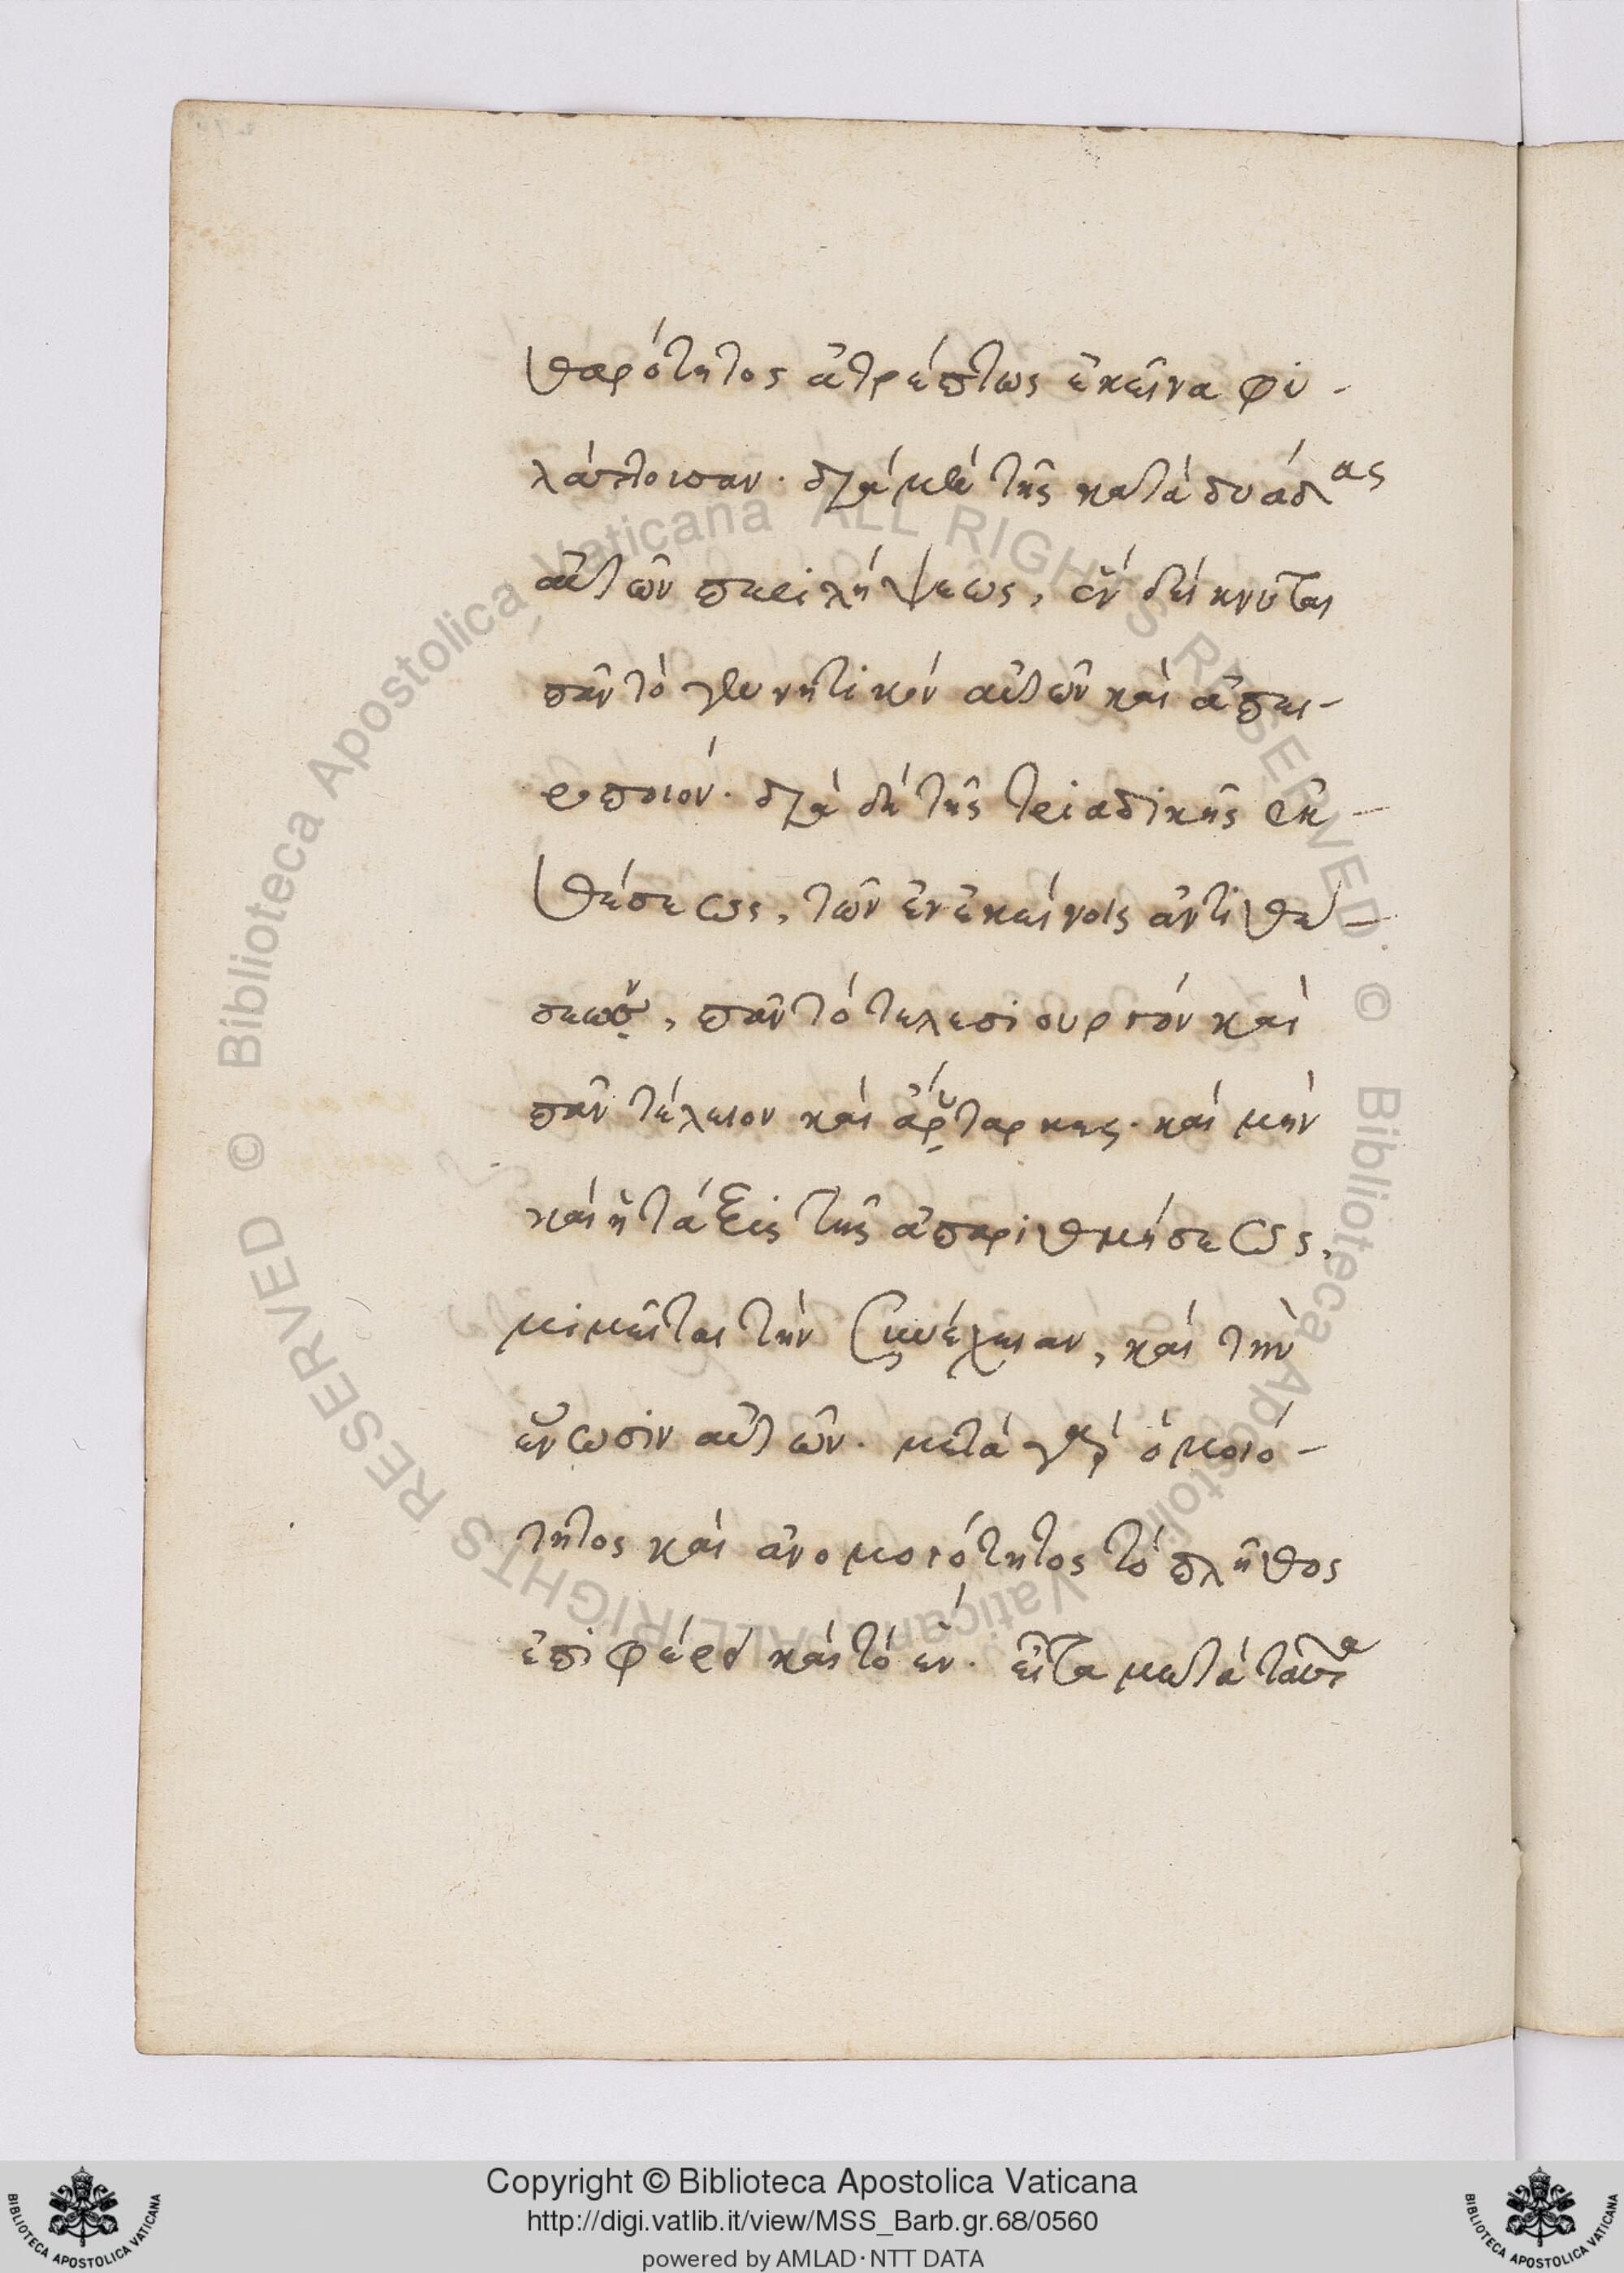 θαρότητος ἀτρέπτως ἐκεῖνα φυ-
λάττοισαν. διὰ μὲν τῆς κατὰ δυάδας
αὐτῶν περιλήψεως, ἐνδείκνυται
πᾶν τὸ γεννητικὸν αὐτῶν καὶ ἀπει-
ροποιόν. διὰ δὲ τῆς τριαδικῆς ἐκ-
θέσεως, τῶν ἐν ἐκείνοις ἀντιθέ-
σεων, πᾶν τὸ τελεσιουργὸν καὶ
πᾶν τέλειον καὶ αὔταρκες. καὶ μὴν
καὶ ἡ τάξις τῆς ἀπαριθμήσεως,
μιμεῖται τὴν συνέχειαν, καὶ τὴν
ἕνωσιν αὐτῶν. μετὰ γὰρ ὁμοιό-
τητος καὶ ἀνομοιότητος τὸ πλῆθος
ἐπιφέρει καὶ τὸ ἕν. εἶτα μετὰ ταῦτα
Copyright © Biblioteca Apostolica Vaticana
http://digi.vatlib.it/view/MSS_Barb.gr.68/0560
powered by AMLAD·NTT DATA
BIBLIOTECA APOSTOLICA VATICANA
BIBLIOTECA APOSTOLICA VATICANA
© Biblioteca Apostolica Vaticana ALL RIGHTS RESERVED © Biblioteca Apostolica Vaticana ALL RIGHTS RESERVED